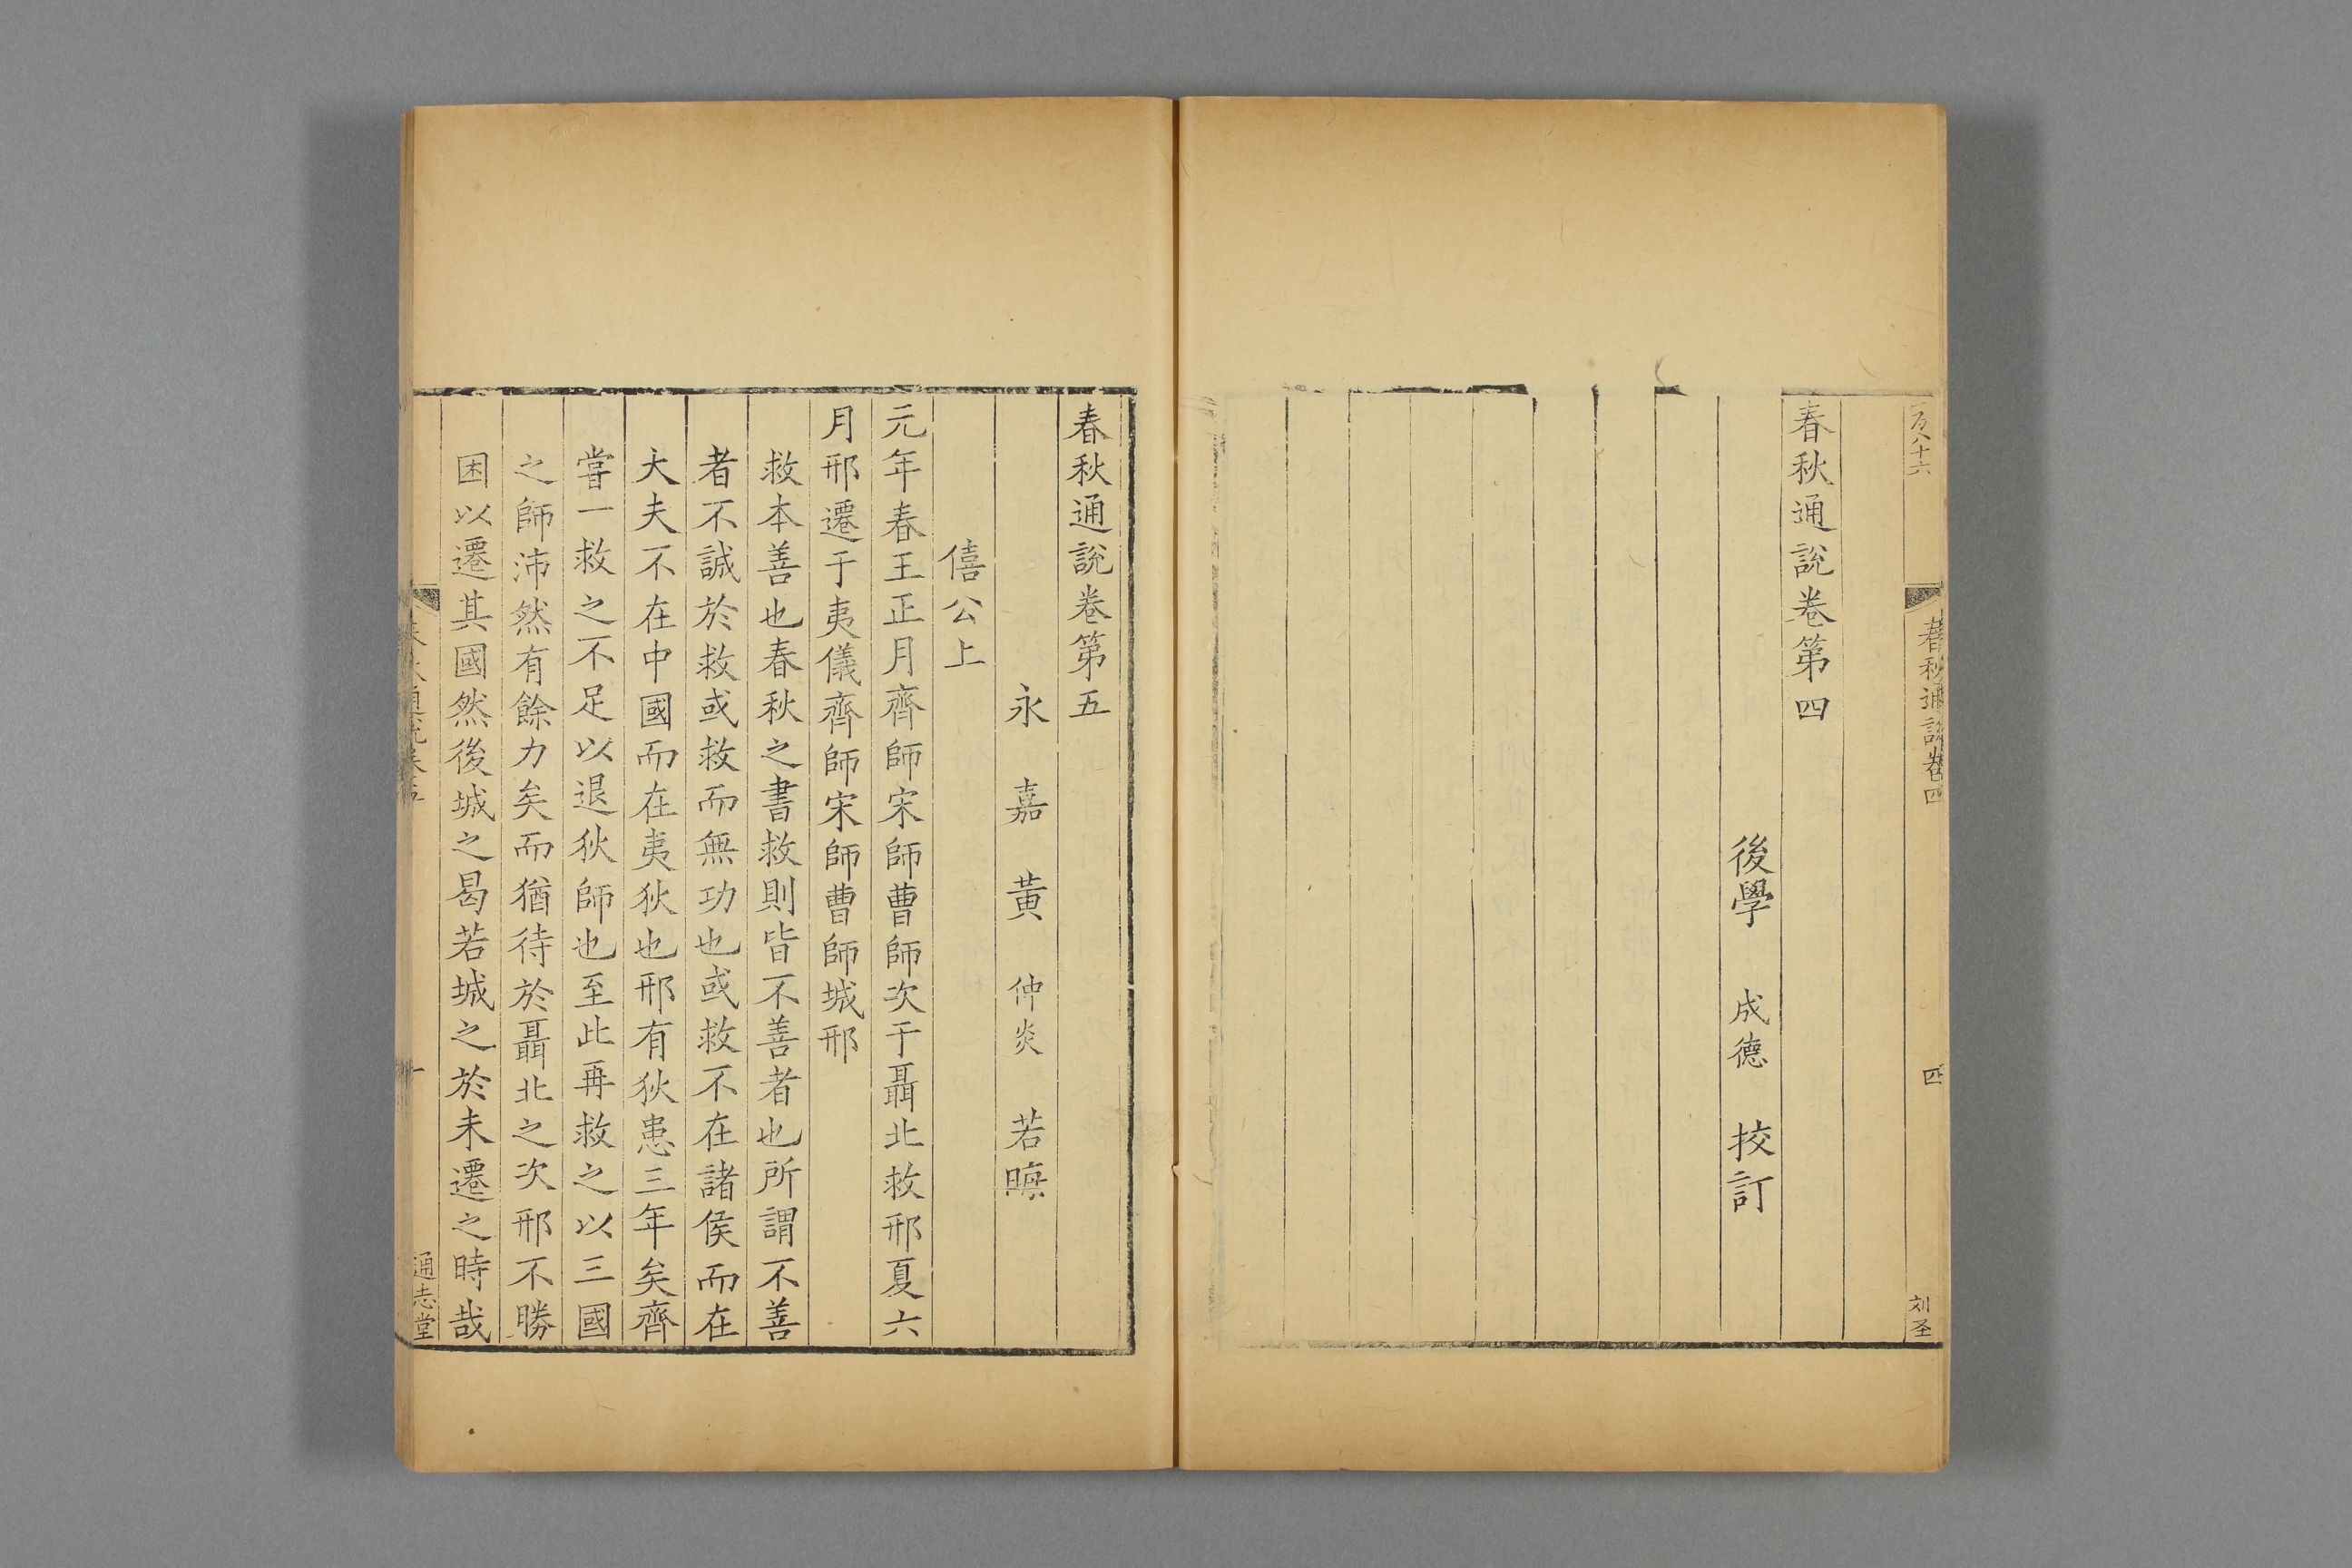 春秋通說卷四
四
刘圣
春秋通說卷第四
後學 成德 挍訂
春秋通說卷第五
永嘉黃仲炎若晦
僖公上
元年春王正月齊師宋師曹師次于聶北救邢夏六
月邢遷于夷儀齊師宋師曹師城邢
救本善也春秋之書救則皆不善者也所謂不善
者不誠於救或救而無功也或救不在諸侯而在
大夫不在中國而在夷狄也邢有狄患三年矣齊
嘗一救之不足以退狄師也至此再救之以三國
之師沛然有餘力矣而猶待於聶北之次邢不勝
困以遷其國然後城之曷若城之於未遷之時哉
一
通志堂